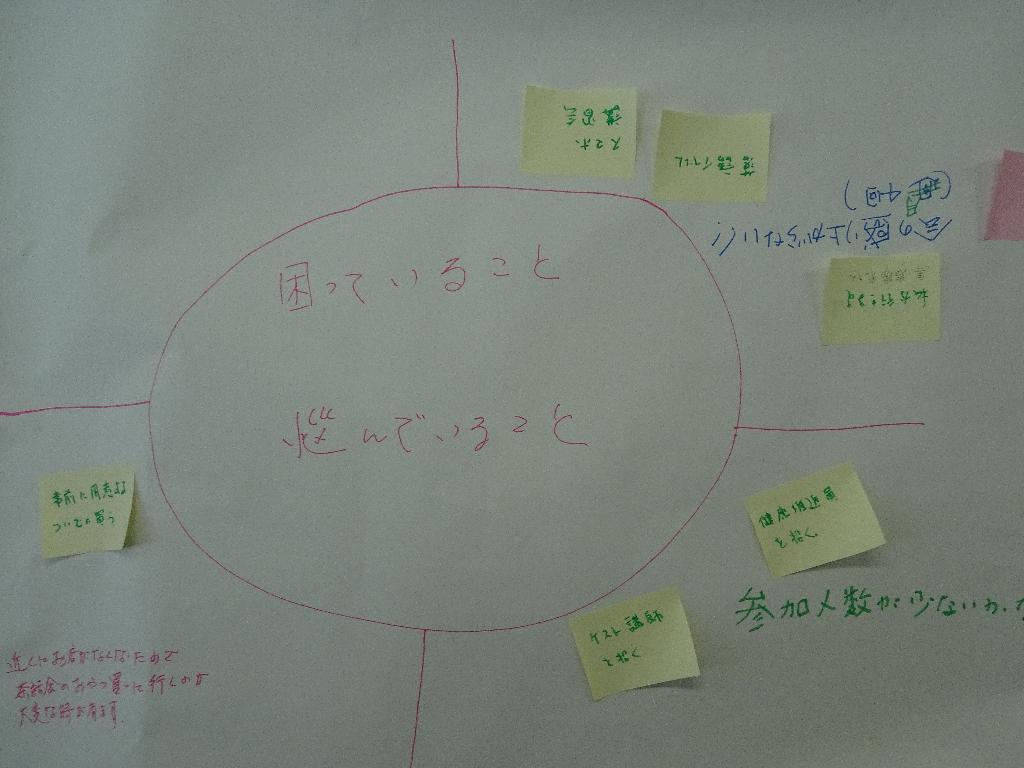 困っていること
悩んでいること
スマホ
講習会
落語
会の盛り上がらない
(月4回)
事前に用意する
ついでに買う
近くにお店がなくなったので
茶話会のおやつ買いに行くのが
大変な時が有ます
健康推進員
を招く
参加人数が少ない
ゲスト講師
を招く